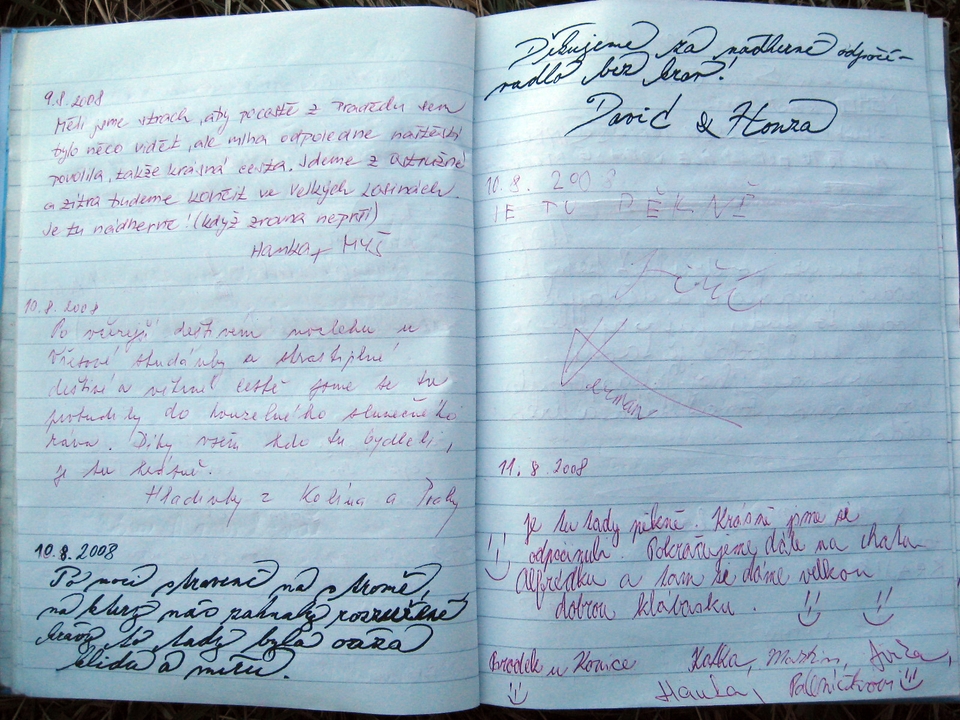 9.8.2008
Měli jsme strach, aby počasté z Pradědu sem
bylo něco vidět, ale mlha odpoledne naštěstí
povolila, takže krásná cesta. Jdeme z Ostružné
a zítra budeme končit ve Velkých Losinách.
Je tu nádherně! (když zrovna neprší)
Hanka + Myš
10.8.2008
Po včerejší deštivém noclehu u
Vřesové studánky a strastiplné
deštivé a větrné cestě jsme se tu
probudily do kouzelného slunečného
rána. Díky všem kdo tu bydleli,
je tu krásně.
Hladinky z Kolína a Prahy
10.8.2008
Po noci strávené na stromě,
na který nás zahnaly rozzuřené
krávy to tady byla oáza
klidu a míru.
Děkujeme za nádherné odpočí-
vadlo bez krav!
David & Honza
10.8.2008
JE TU PĚKNĚ
11.8.2008
Je tu tady pěkně. Krásně jsme si
odpočinuli. Pokračujeme dále na chatu
Alfrédku a tam si dáme velkou
dobrou klobásku.
Brodek u Konice
Katka, Martin,
Hanka,